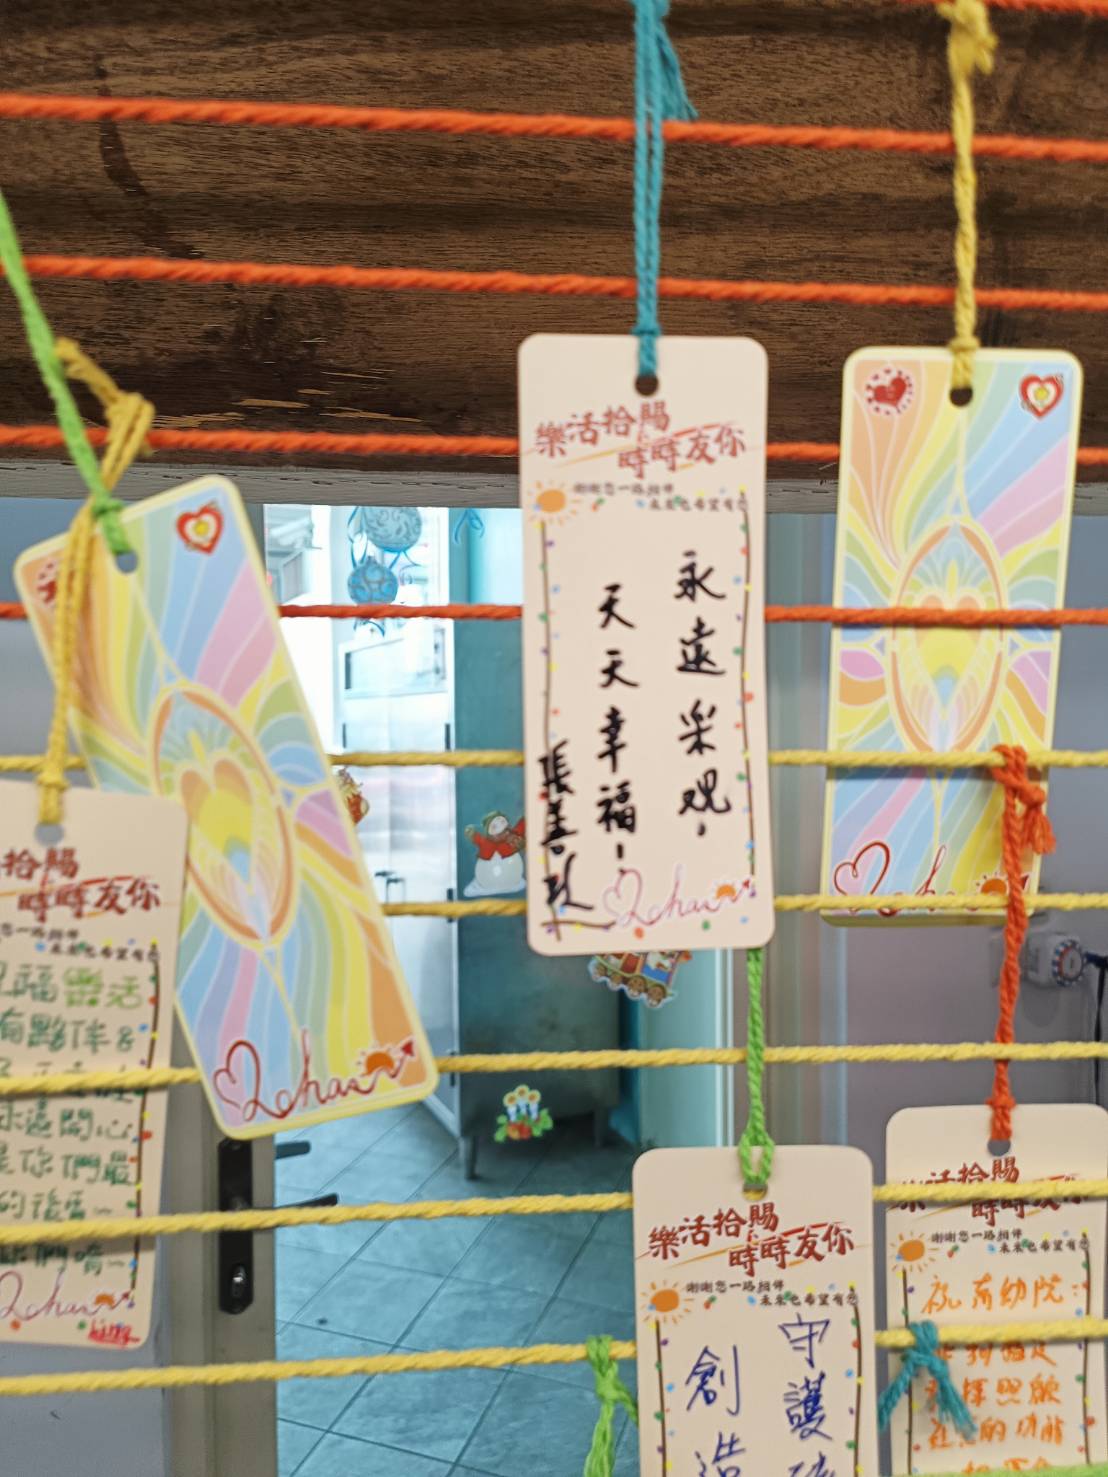 樂活拾賜
時時友你
謝謝您一路相伴
未來也希望有您
永遠樂观，
天天幸福！
張善
2chair
2chair
2chair
拾賜
時時友你
您一路相伴
未來也希望有您
福樂活
有夥伴&
永遠開心
是你們最
的後盾~
2chair
樂活拾賜
時時友你
謝謝您一路相伴
未來也希望有您
守護
創造
樂活拾賜
時時友你
謝謝您一路相伴
未來也希望有您
祝育幼院：